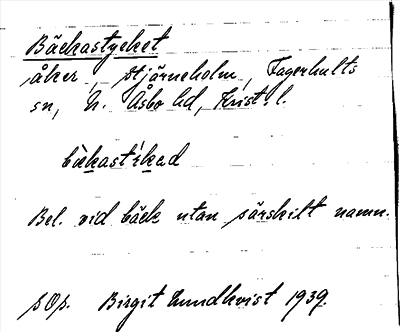 Bäckastycket
åker, Stjärneholm, Fagerhults
sn, N. Åsbo hd, Krist. l.
bækastikad
Bel. vid bäck utan särskilt namn.
pOp. Birgit Lundkvist 1939.